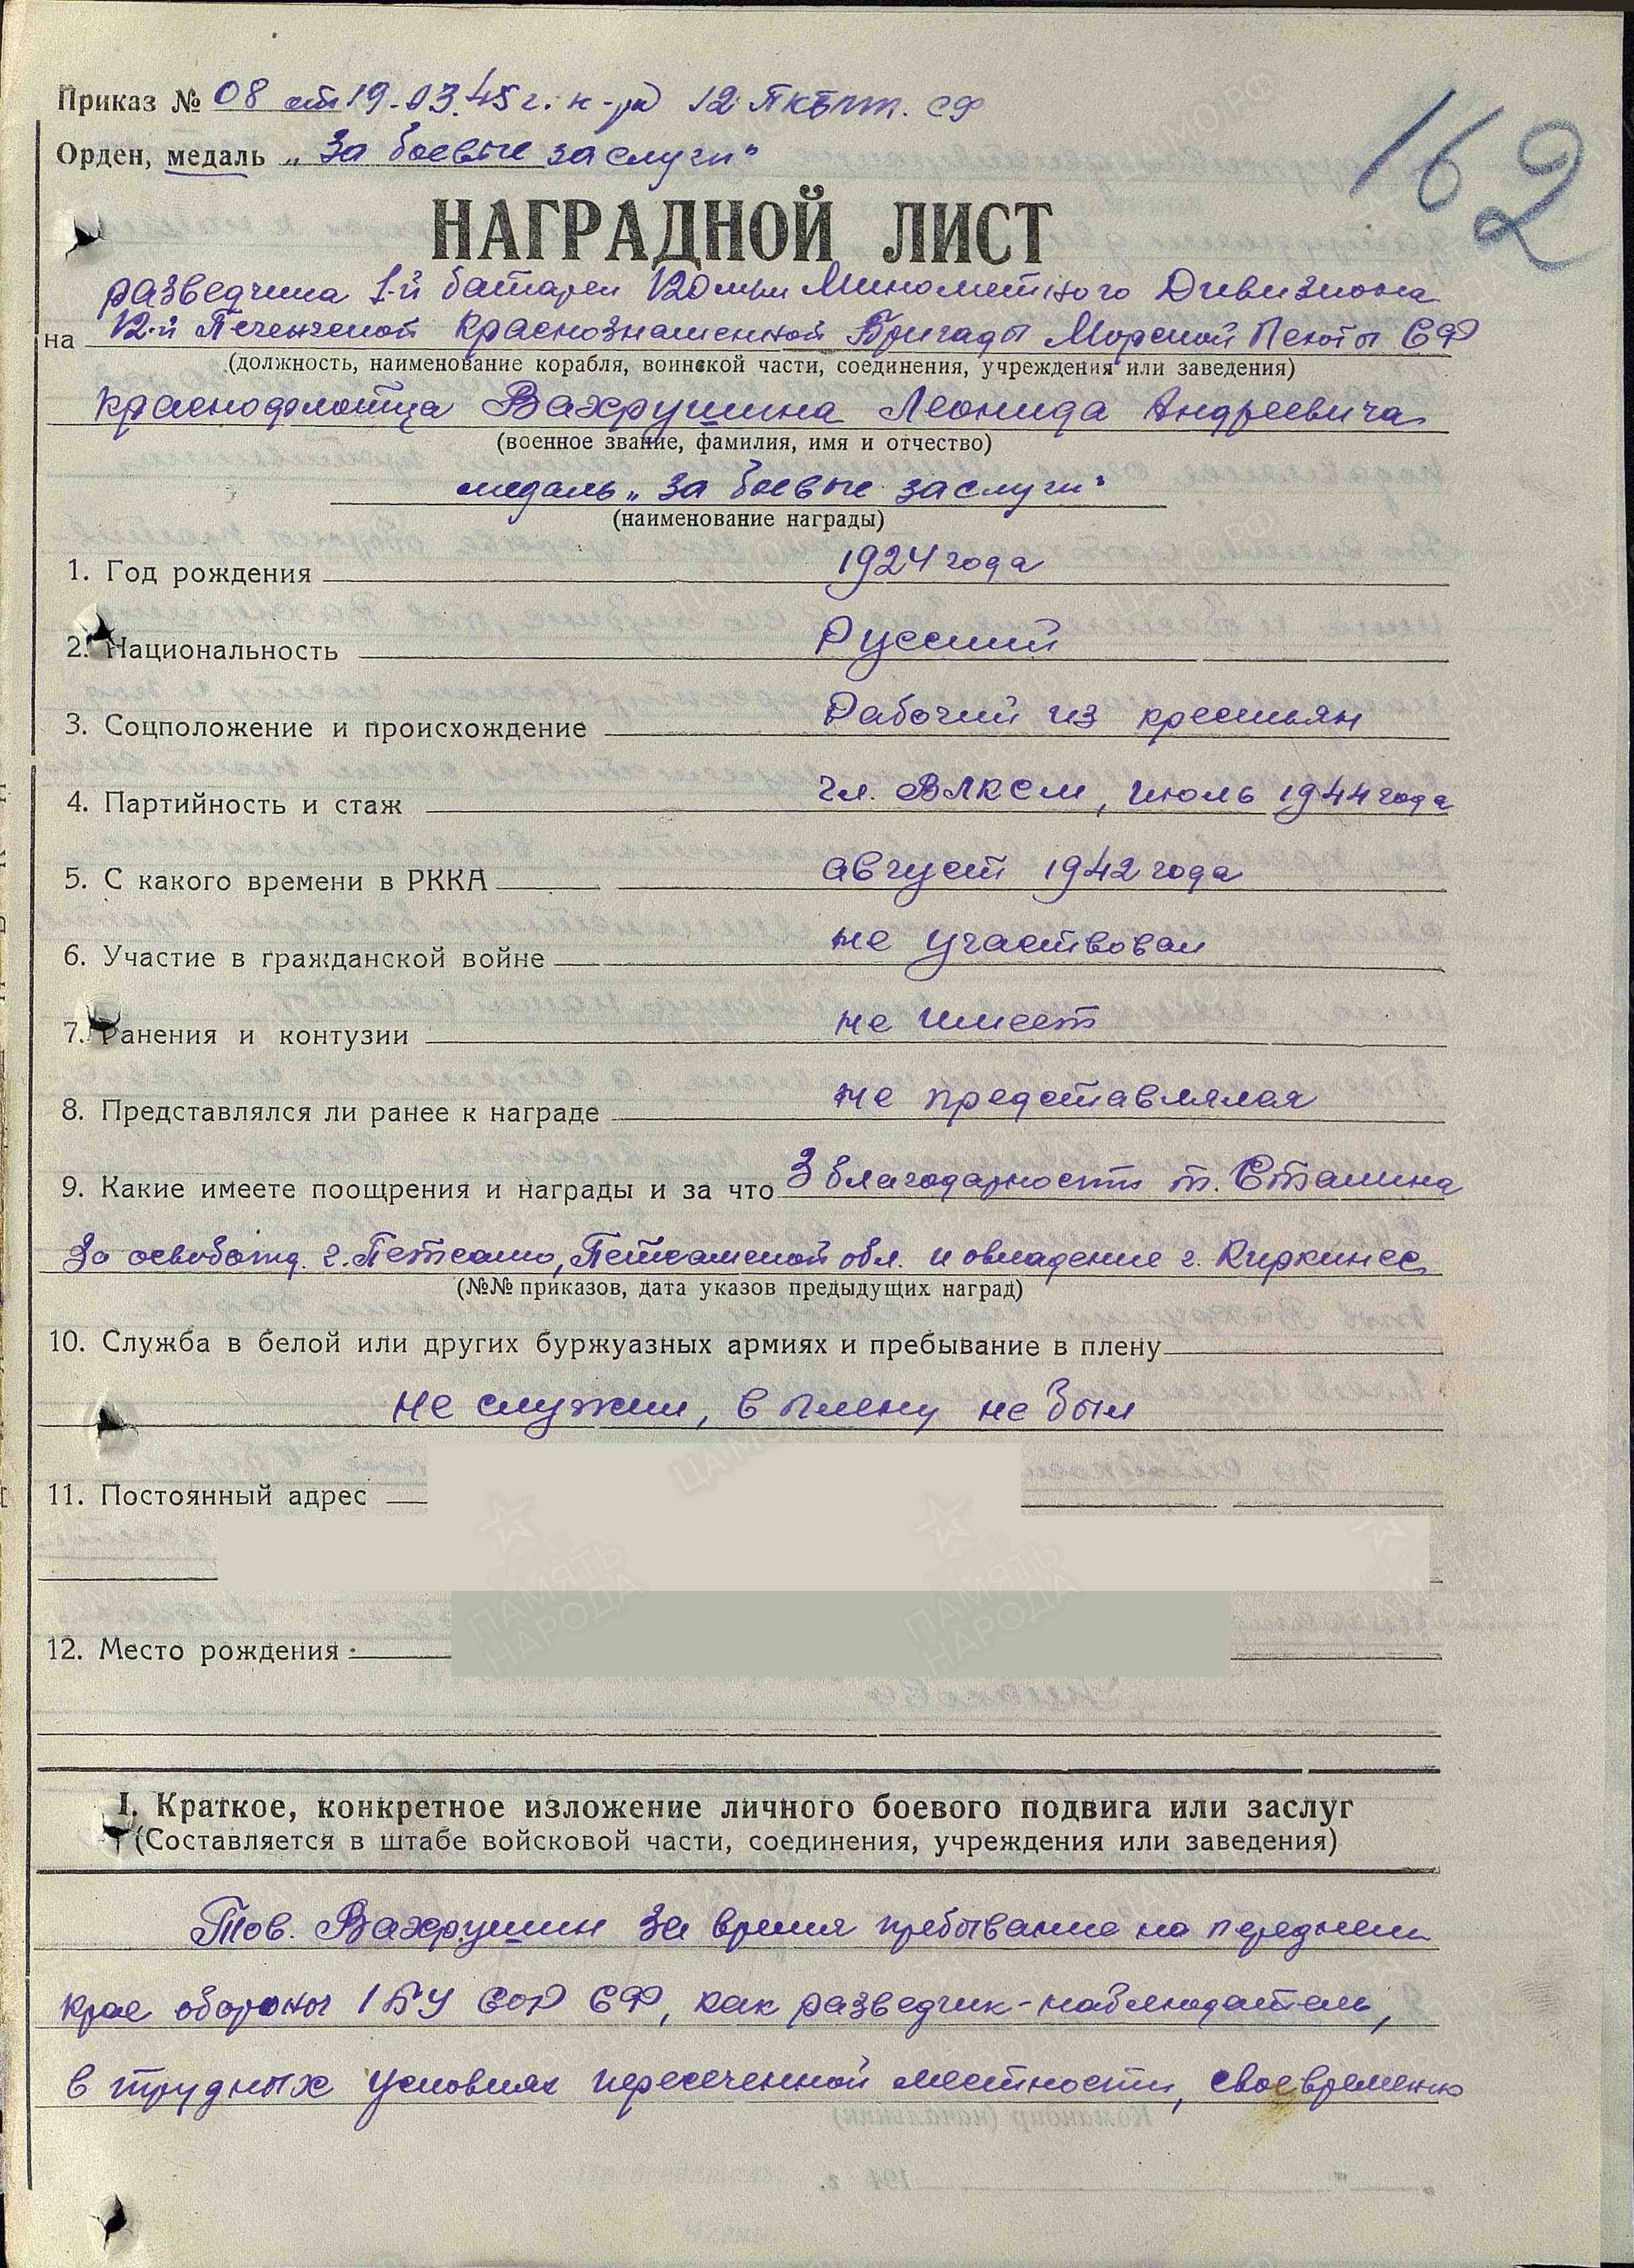 Приказ № 08 от 19.03.45 г. к-ра 12 ПКБМП. СФ
162
Орден, медаль „За боевые заслуги“
НАГРАДНОЙ ЛИСТ
разведчика 1-й батареи 120 мм Минометного Дивизиона
на 12-й Печенгской Краснознаменной Бригады Морской Пехоты СФ
(должность, наименование корабля, воинской части, соединения, учреждения или заведения)
краснофлотца Вахрушина Леонида Андреевича
(военное звание, фамилия, имя и отчество)
медаль „За боевые заслуги“
(наименование награды)
1. Год рождения 1924 года
2. Национальность Русский
3. Соцположение и происхождение Рабочий из крестьян
4. Партийность и стаж чл. ВЛКСМ, июль 1944 года
5. С какого времени в РККА август 1942 года
6. Участие в гражданской войне не участвовал
7. Ранения и контузии не имеет
8. Представлялся ли ранее к награде не представлялся
9. Какие имеете поощрения и награды и за что 3 благодарности т. Сталина
За освобожд. г. Петсамо, Петсамской обл. и овладение г. Киркинес
(№№ приказов, дата указов предыдущих наград)
10. Служба в белой или других буржуазных армиях и пребывание в плену
не служил, в плену не был
11. Постоянный адрес
12. Место рождения
I. Краткое, конкретное изложение личного боевого подвига или заслуг
(Составляется в штабе войсковой части, соединения, учреждения или заведения)
Тов. Вахрушин за время пребывание на переднем
крае обороны 1 БУ СОР СФ, как разведчик-наблюдатель,
в трудных условиях пересеченной местности, своевременно